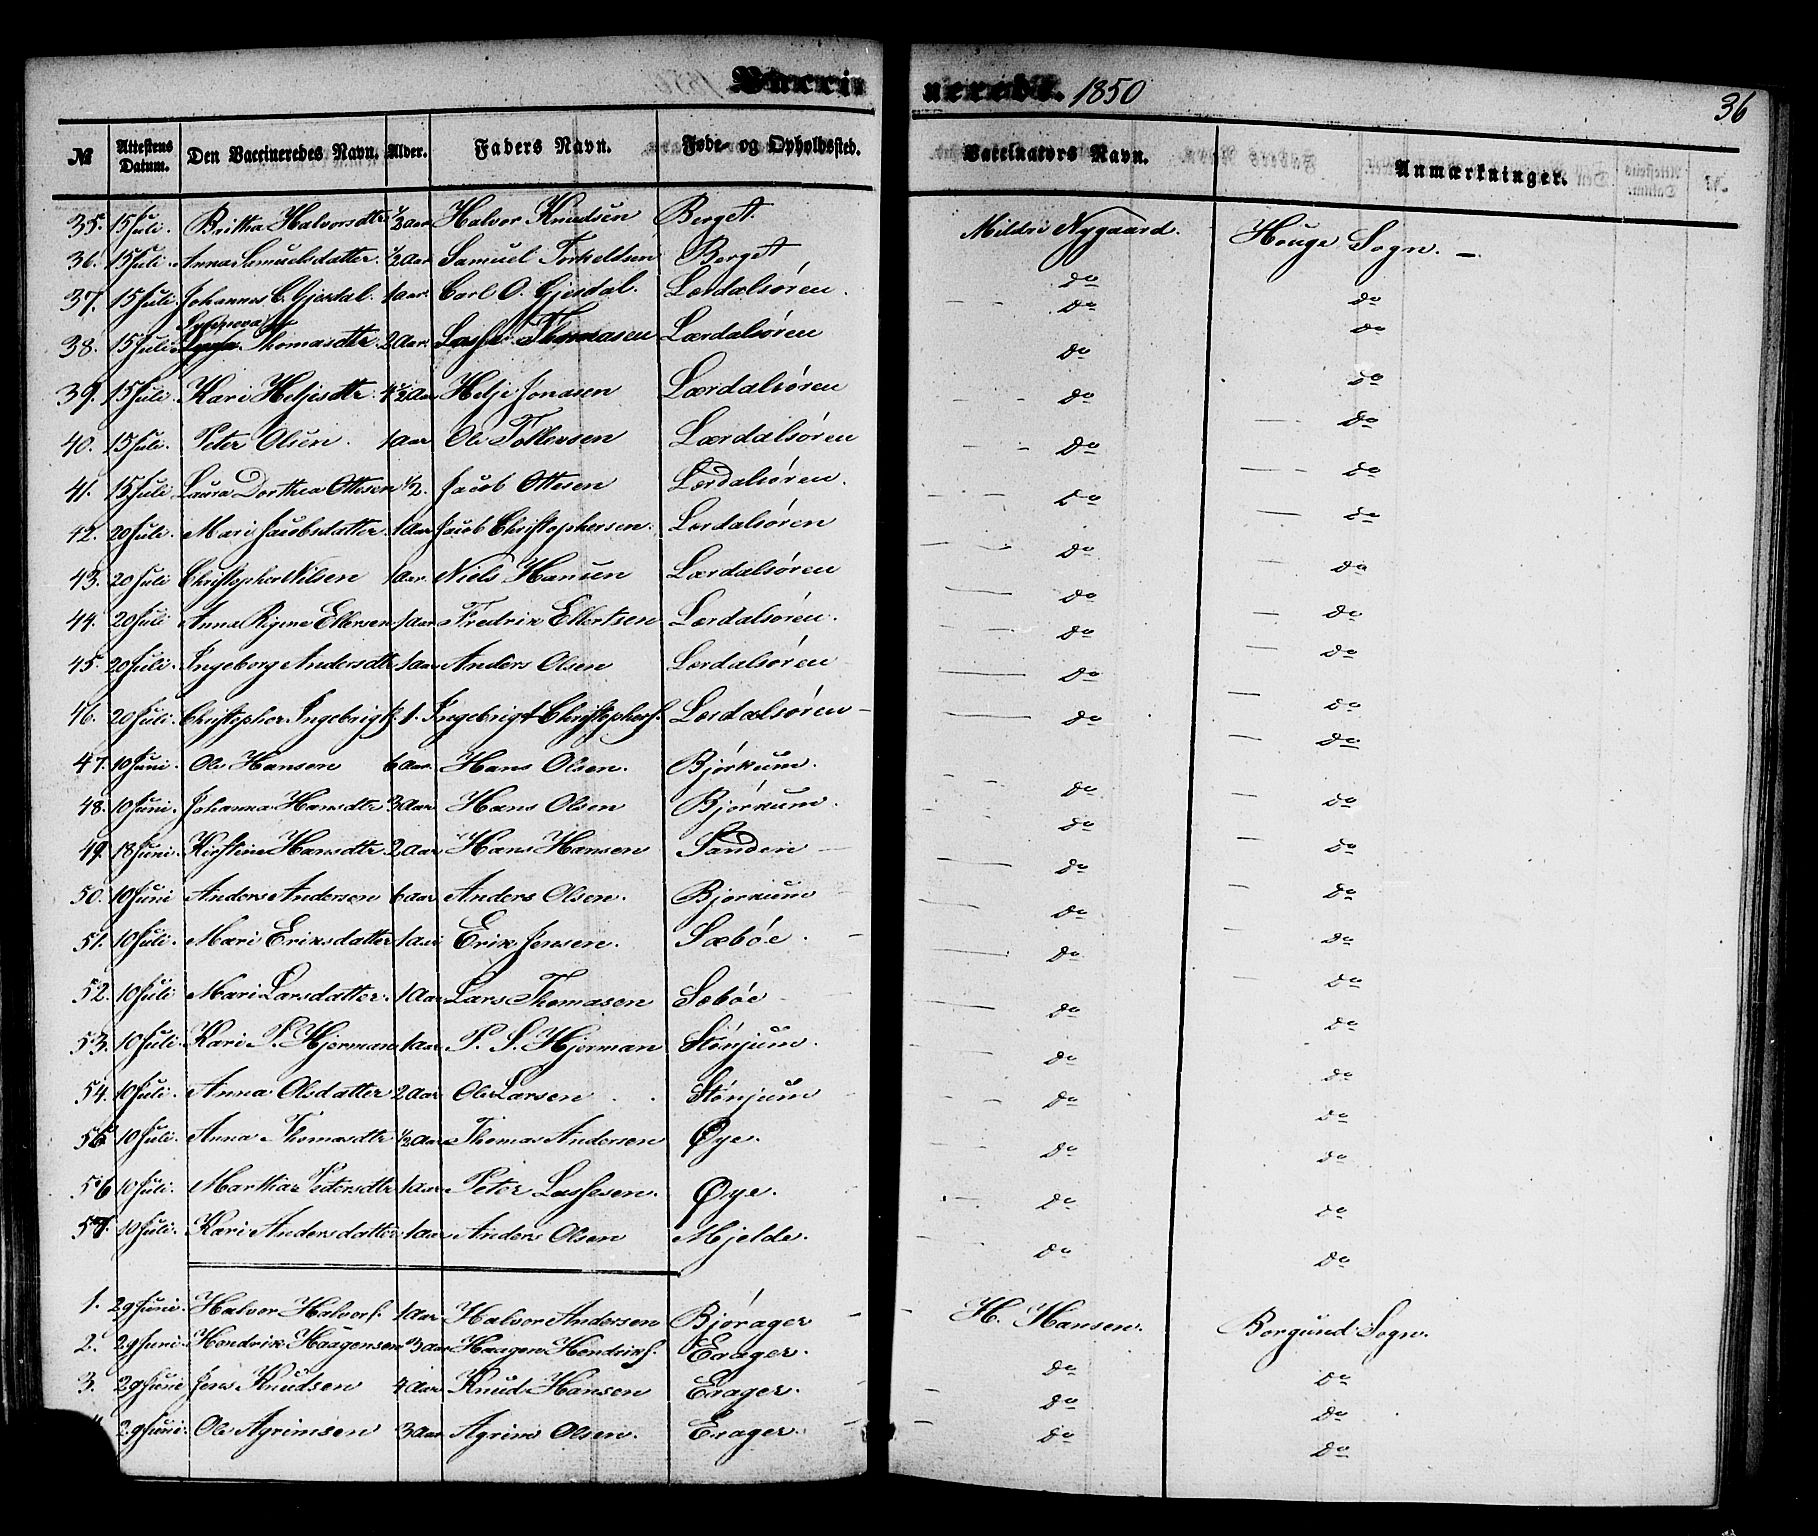 Vaccineerede. 1850 36
№ Attestens Datum. Den Vaccineredes Navn. Alder. Faders Navn. Føde- og Opholdssted. Vaccinators Navn. Anmærkninger.
35. 15 Juli. Britha Halvorsdtr ½ aar Halvor Knudsen Berget. Mildri Nygaard. Houge Sogn. –
36. 15 Juli. Anna Samuelsdatter. ½ aar Samuel Torkeldsen Berget do do
37. 15 Juli Johannes C. Gjesdal. 1 aar. Carl O. Gjesdal. Lærdalsören. do do
38. 15 Juli Thomasdtr. 2 Aar. Lasse Thomasen Lærdalsören do do
39. 15 Juli. Kari Heljesdtr. 4½ aar Helje Jonasen Lærdalsören do do
40. 15 Juli. Peter Olsen. 1 aar Ole Tollevsen Lærdalsören do do
41. 15 Juli Laura Dorthea Ottesen ½. Jacob Ottesen Lærdalsören. do do
42. 20 Juli. Mari Jacobsdatter. 1 Aar Jacob Christophersen. Lærdalsören do do
43. 20 Juli Christopher Nilsen 1 aar. Niels Hansen Lærdalsören do do
44. 20 Juli Anna Rigme Ellersen 1 aar Fredrik Ellertsen Lærdalsören. do do
45. 20 Juli. Ingeborg Andersdtr 1 aar Anders Olsen Lærdalsören do do
46. 20 Juli. Christopher Ingebrigts. 1. Ingebrigt Christophers. Lærdalsören – do do
47. 10 Juni. Ole Hansen 6 aar. Hans Olsen. Bjørkum. do do
48. 10 Juni. Johanna Hansdtr 3 Aar Hans Olsen Bjørkum. do do
49. 18 Juni. Kirstine Hansdtr 2 aar Hans Hansen Sanden do do
50. 10 Juni Anders Andersen 6 aar Anders Olsen. Bjørkum do do
51. 10 Juli. Mari Eriksdatter 1 aar Erik Jensen. Sæbøe. do do
52. 10 Juli Mari Larsdatter. 1 Aar Lars Thomasen Sæbøe do do
53. 10 Juli. Kari P. Hjerman 1 aar P. S. Hjerman Stønjum. do do
54. 10 Juli. Anna Olsdatter 2 aar Ole Larsen Stønjum do do
55 10 Juli. Anna Thomasdtr ½ aar Thomas Andersen Øye. do do
56 10 Juli. Martha Petersdtr 1 aar Peter Lassesen. Øye. do do
57. 10 Juli. Kari Andersdatter 1 aar Anders Olsen Mjelde. do do
1. 29 Juni. Halvor Halvors. 1 aar Halvor Andersen Bjørager H. Hansen. Borgund Sogn.
2. 29 Juni. Hendrik Haagensen 3 aar Haagen Hendriks. Erager. do do
3. 29 Juni Jens Knudsen 4 aar Knud Hansen Erager. do do
29 Juni. Ole Agrimsen 3 aar Agrim Olsen. Erager. do do